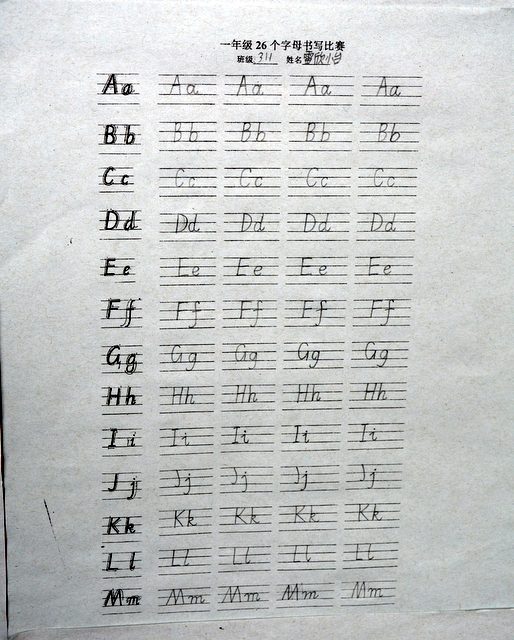 一年级 26 个字母书写比赛
班级 311 姓名
Aa Aa Aa Aa Aa
Bb Bb Bb Bb Bb
Cc Cc Cc Cc Cc
Dd Dd Dd Dd Dd
Ee Ee Ee Ee Ee
Ff Ff Ff Ff Ff
Gg Gg Gg Gg Gg
Hh Hh Hh Hh Hh
Ii Ii Ii Ii Ii
Jj Jj Jj Jj Jj
Kk Kk Kk Kk Kk
Ll Ll Ll Ll Ll
Mm Mm Mm Mm Mm